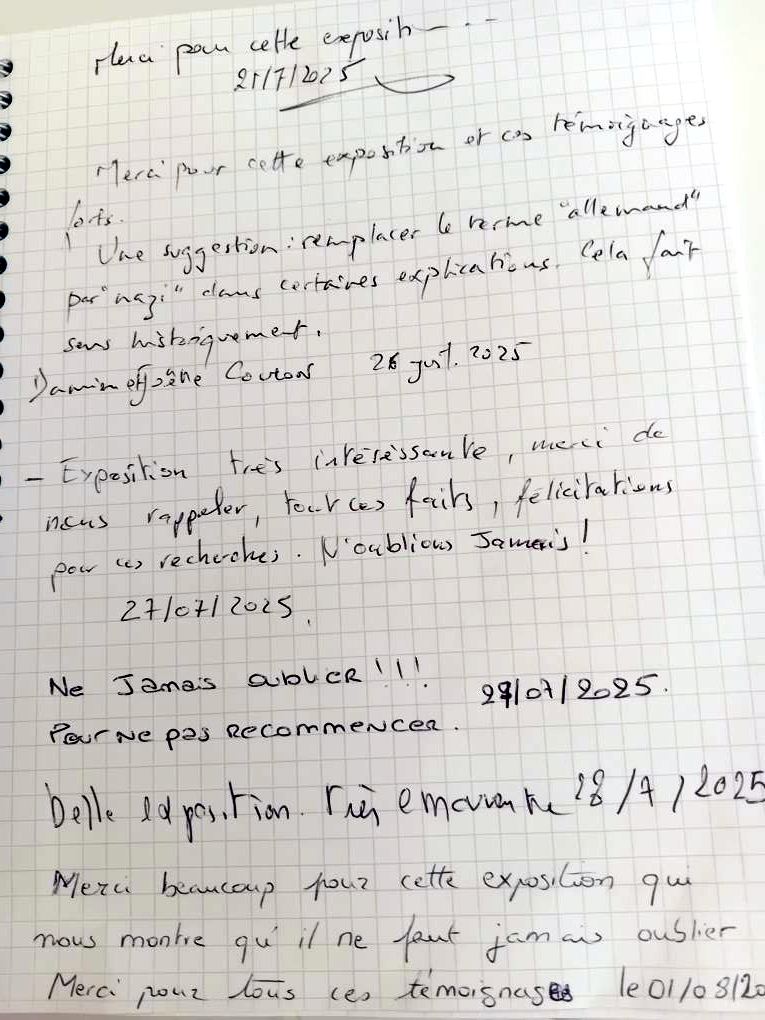 Merci pour cette exposition...
21/7/2025
Merci pour cette exposition et ces témoignages
forts.
Une suggestion : remplacer le terme "allemand"
par "nazi" dans certaines explications. Cela fait
sens historiquement.
Damien et 26 juil. 2025
- Exposition très intéréssante, merci de
nous rappeler, tout ces faits, félicitations
pour ces recherches. N'oublions Jamais !
27/07/2025.
Ne Jamais oublier !!!
/07/2025.
Pour ne pas recommencer.
Belle exposition. Très émouvante 28/7/2025
Merci beaucoup pour cette exposition qui
nous montre qu'il ne faut jamais oublier
Merci pour tous ces témoignages le 01/08/20